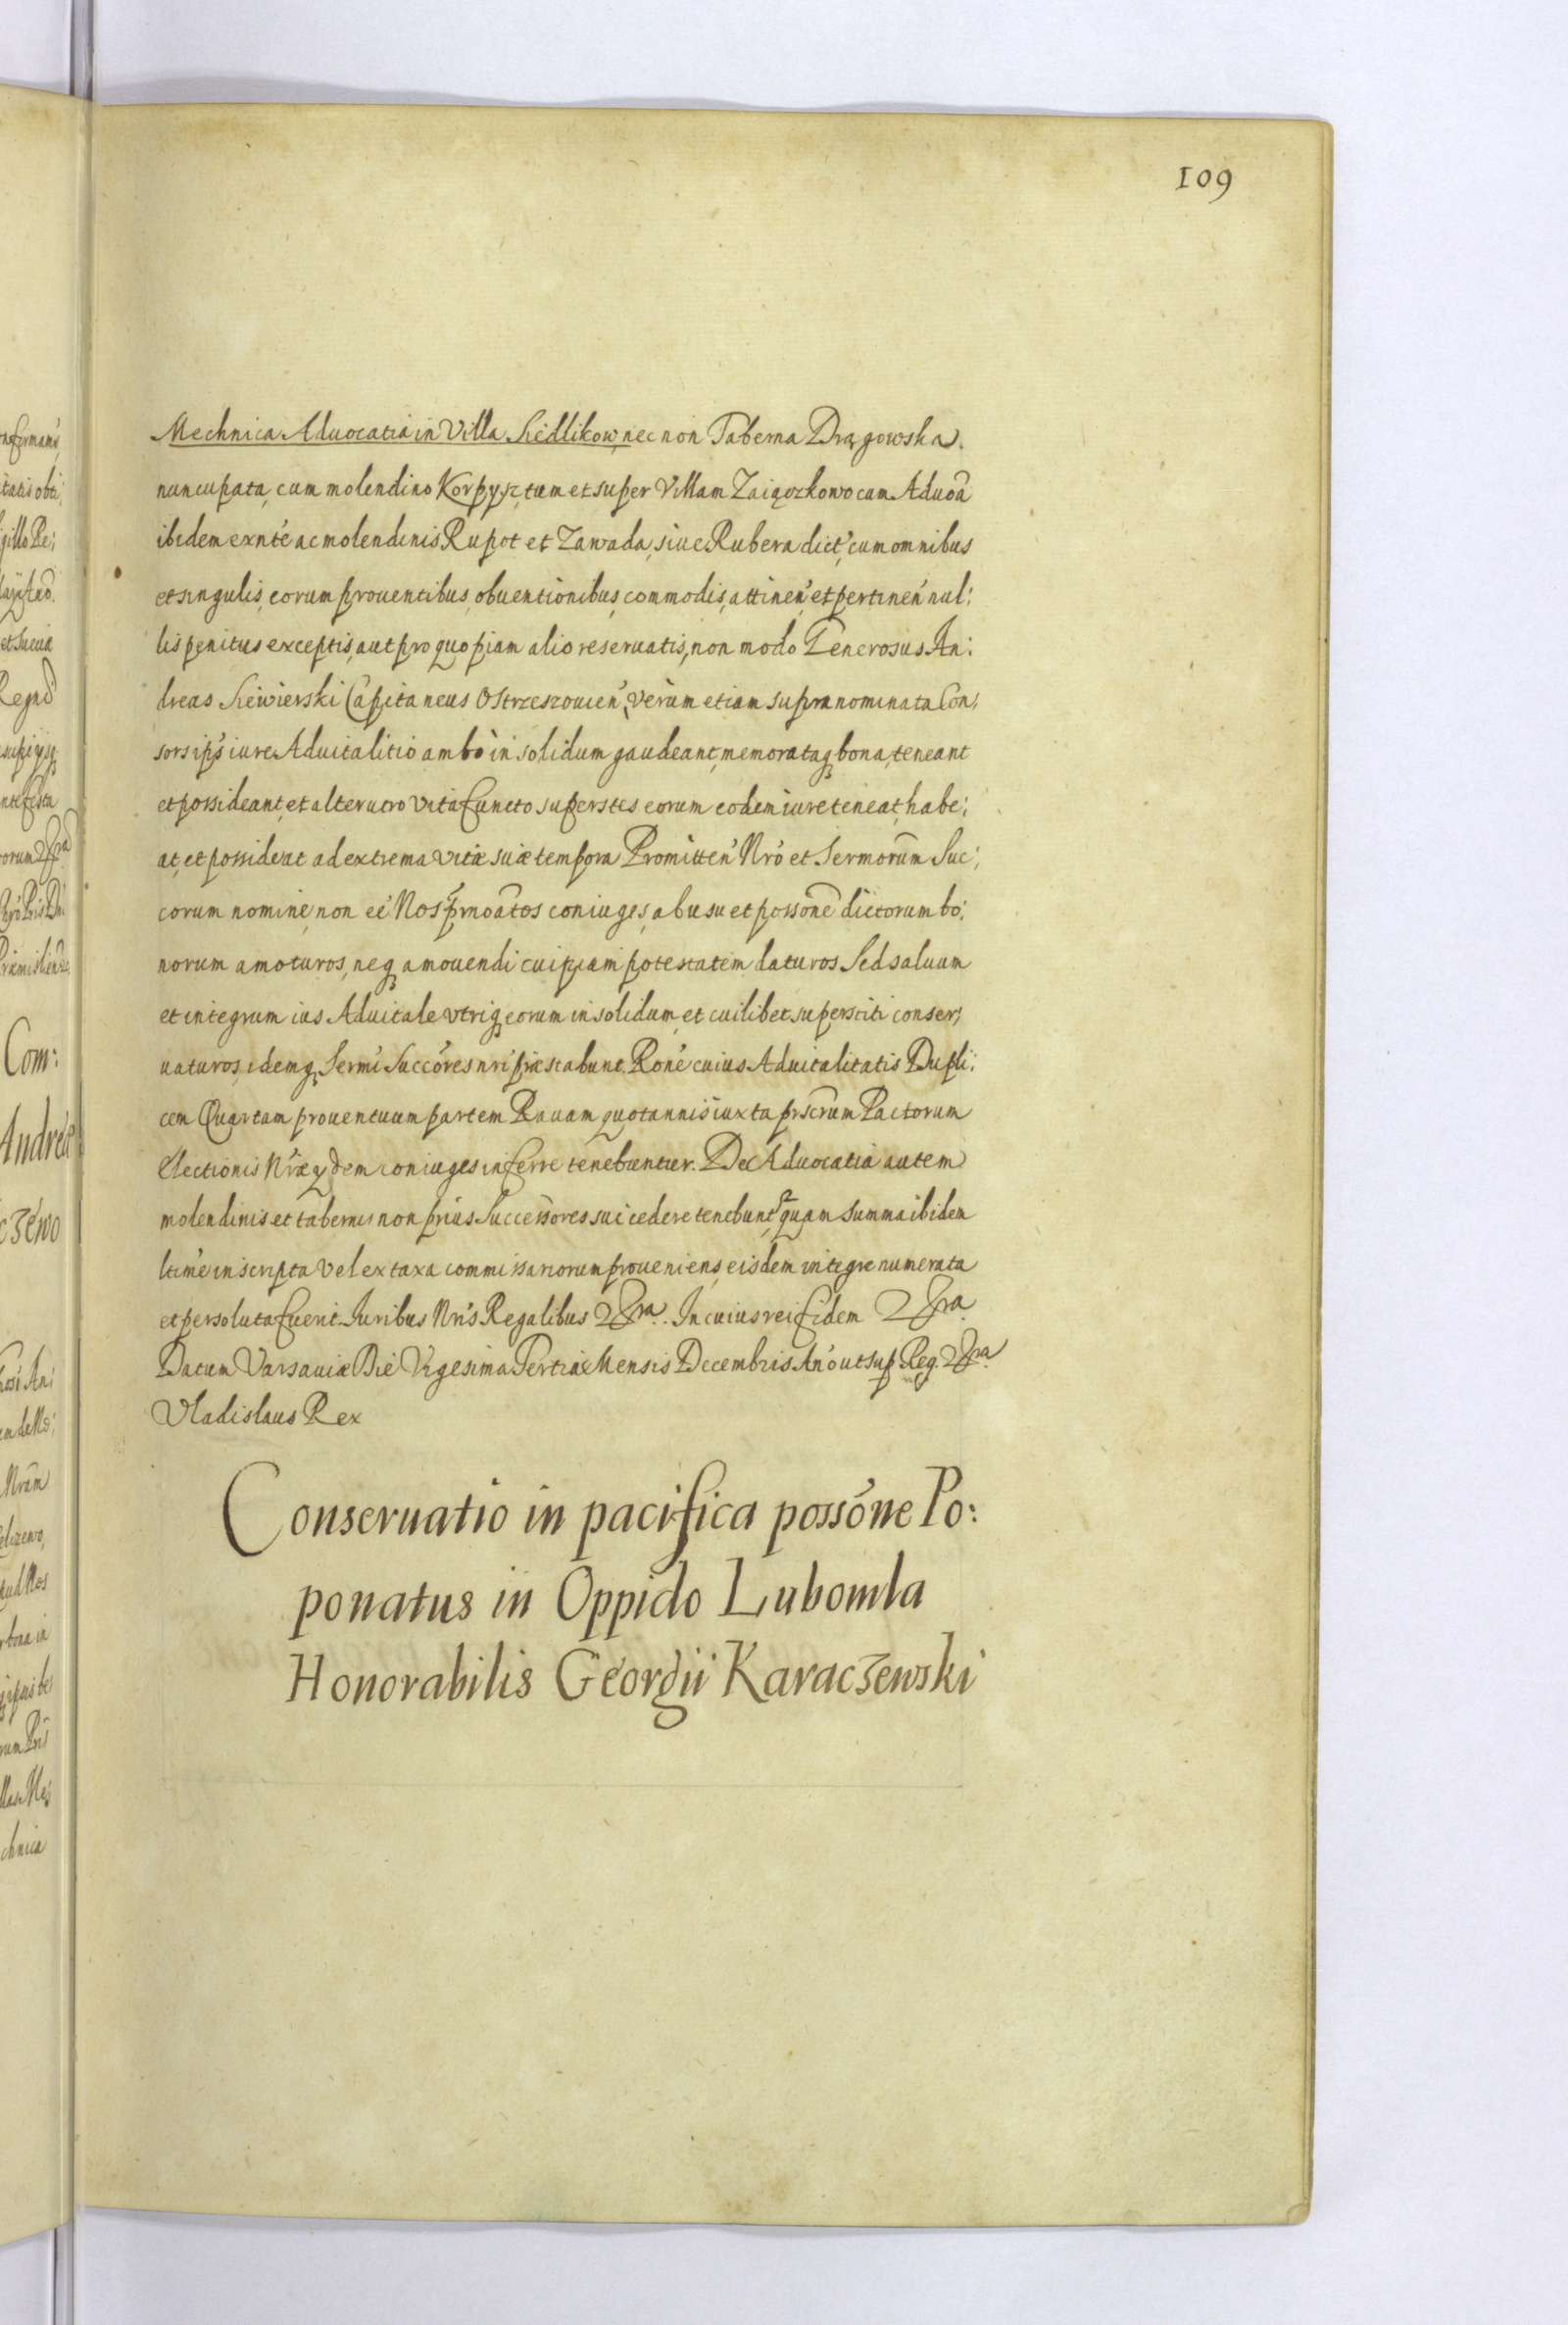 109
Mechnica Aduocatia in Villa Siedlikow, nec non Taberna Drągowska
nuncupata, cum molendino Korpysz, tum et super Villam Zaiączkowo cum Aduoã
ibidem exnte ac molendinis Rupot et Zawada, siue Rubera dict, cum omnibus
et singulis, eorum prouentibus, obuentionibus, commodis, attinen, et pertinen nul:
lis penitus exceptis, aut pro quopiam alio reseruatis, non modo Generosus An:
dreas Siewierski Capitaneus Ostrzeszouien, Verum etiam supranominata Con:
sors ips iure Aduitalitio ambo in solidum gaudeant, memorataq bona, teneant
et possideant, et alterutro vita functo superstes eorum eodem iure teneat, habe:
at, et possideat ad extrema vitæ suæ tempora Promitten Nro et Sermorum Suc:
corum nomine, non eē Nos prnoatos coniuges, ab usu et possone dictorum bo:
norum amoturos, neq amouendi cuipiam potestatem daturos Sed saluum
et integrum ius Aduitale vtriq eorum in solidum, et cuilibet superstiti conser:
uaturos, idemq Sermi Succores nri præstabunt. Rone cuius Aduitalitatis Dupli:
cem Quartam prouentuum partem Rauam quotannis iuxta prscrum Pactorum
Electionis Nræ ydem coniuges inferre tenebuntur. De Aduocatia autem
molendinis et tabernis non prius Successores sui cedere tenebunt, quam summa ibidem
ltime inscripta vel ex taxa commissariorum proueniens, eisdem integre numerata
et persoluta fuerit. Iuribus Nris Regalibus In cuius rei fidem
Datum Varsauiæ Die Vigesima Tertia Mensis Decembris Ano ut sup Reg.
Vladislaus Rex
Conseruatio in pacifica possone Po:
ponatus in Oppido Lubomla
Honorabilis Georgii Karaczewski